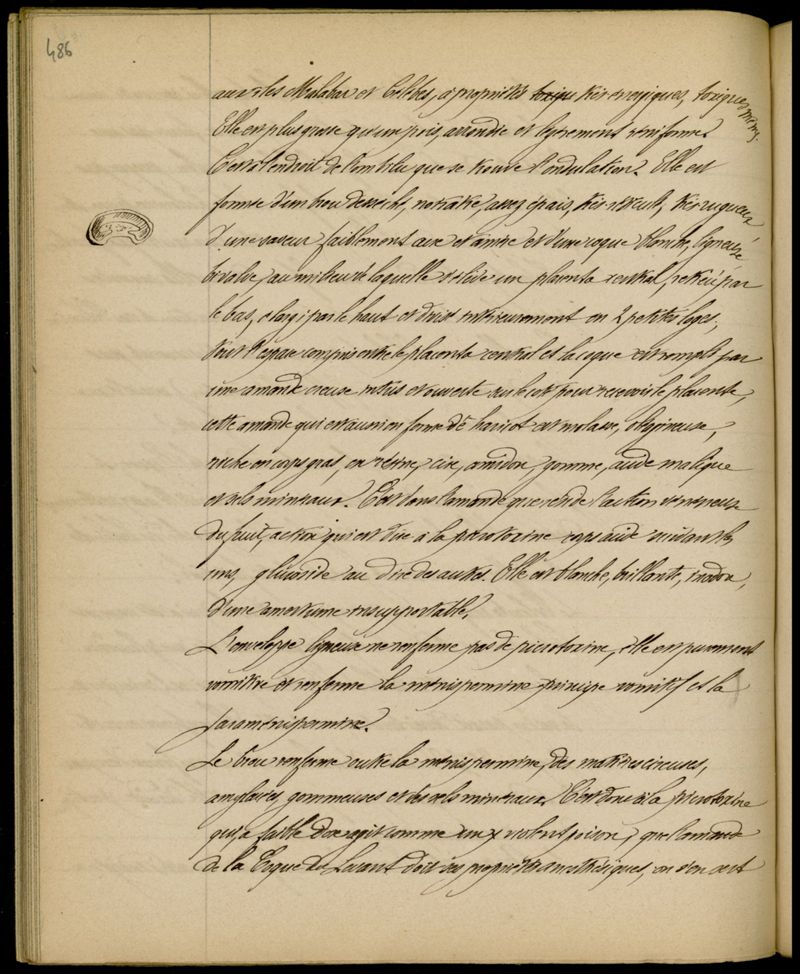 486
aux îles Malabar et Célèbes, a propriétés toxiques très énergiques, toxiques
Elle est plus grosse qu'un pois, arrondie et légèrement réniforme.
C'est à l'endroit de l'ombilic que se trouve l'ondulation. Elle est
formée d'un brou desséché, noirâtre, assez épais, très rugueux,
d'une saveur faiblement acre et amère et d'une coque blanche, ligneuse
bivalve, au milieu de laquelle s'élève un placenta central, rétréci par
le bas, élargi par le haut et divisé intérieurement en 2 petites loges,
tout l'espace compris entre le placenta central et la coque est rempli par
une amande creuse et ouverte pour recevoir le placenta,
cette amande qui est aussi en forme de haricot est oléagineuse,
riche en corps gras, en résine, cire, amidon, gomme, acide malique
et sels minéraux. C'est dans l'amande que réside l'action vénéneuse
du fruit, action qui est due à la picrotoxine corps acide suivant les
uns, glucoside au dire des autres. Elle est blanche, brillante, inodore,
d'une amertume insupportable.
L'enveloppe ligneuse ne renferme pas de picrotoxine, elle est purement
vomitive et renferme la ménispermine principe vomitif et la
paraménispermine.
Le brou renferme outre la ménispermine, des matières cireuses,
amylacées, gommeuses et des sels minéraux. C'est donc à la picrotoxine
qui, à faible dose agit comme un violent poison, que l'amande
de la Coque du Levant doit ses propriétés, on s'en sert